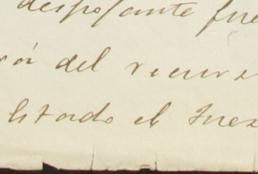 desposante fue
ón del recurs
litado el Juez